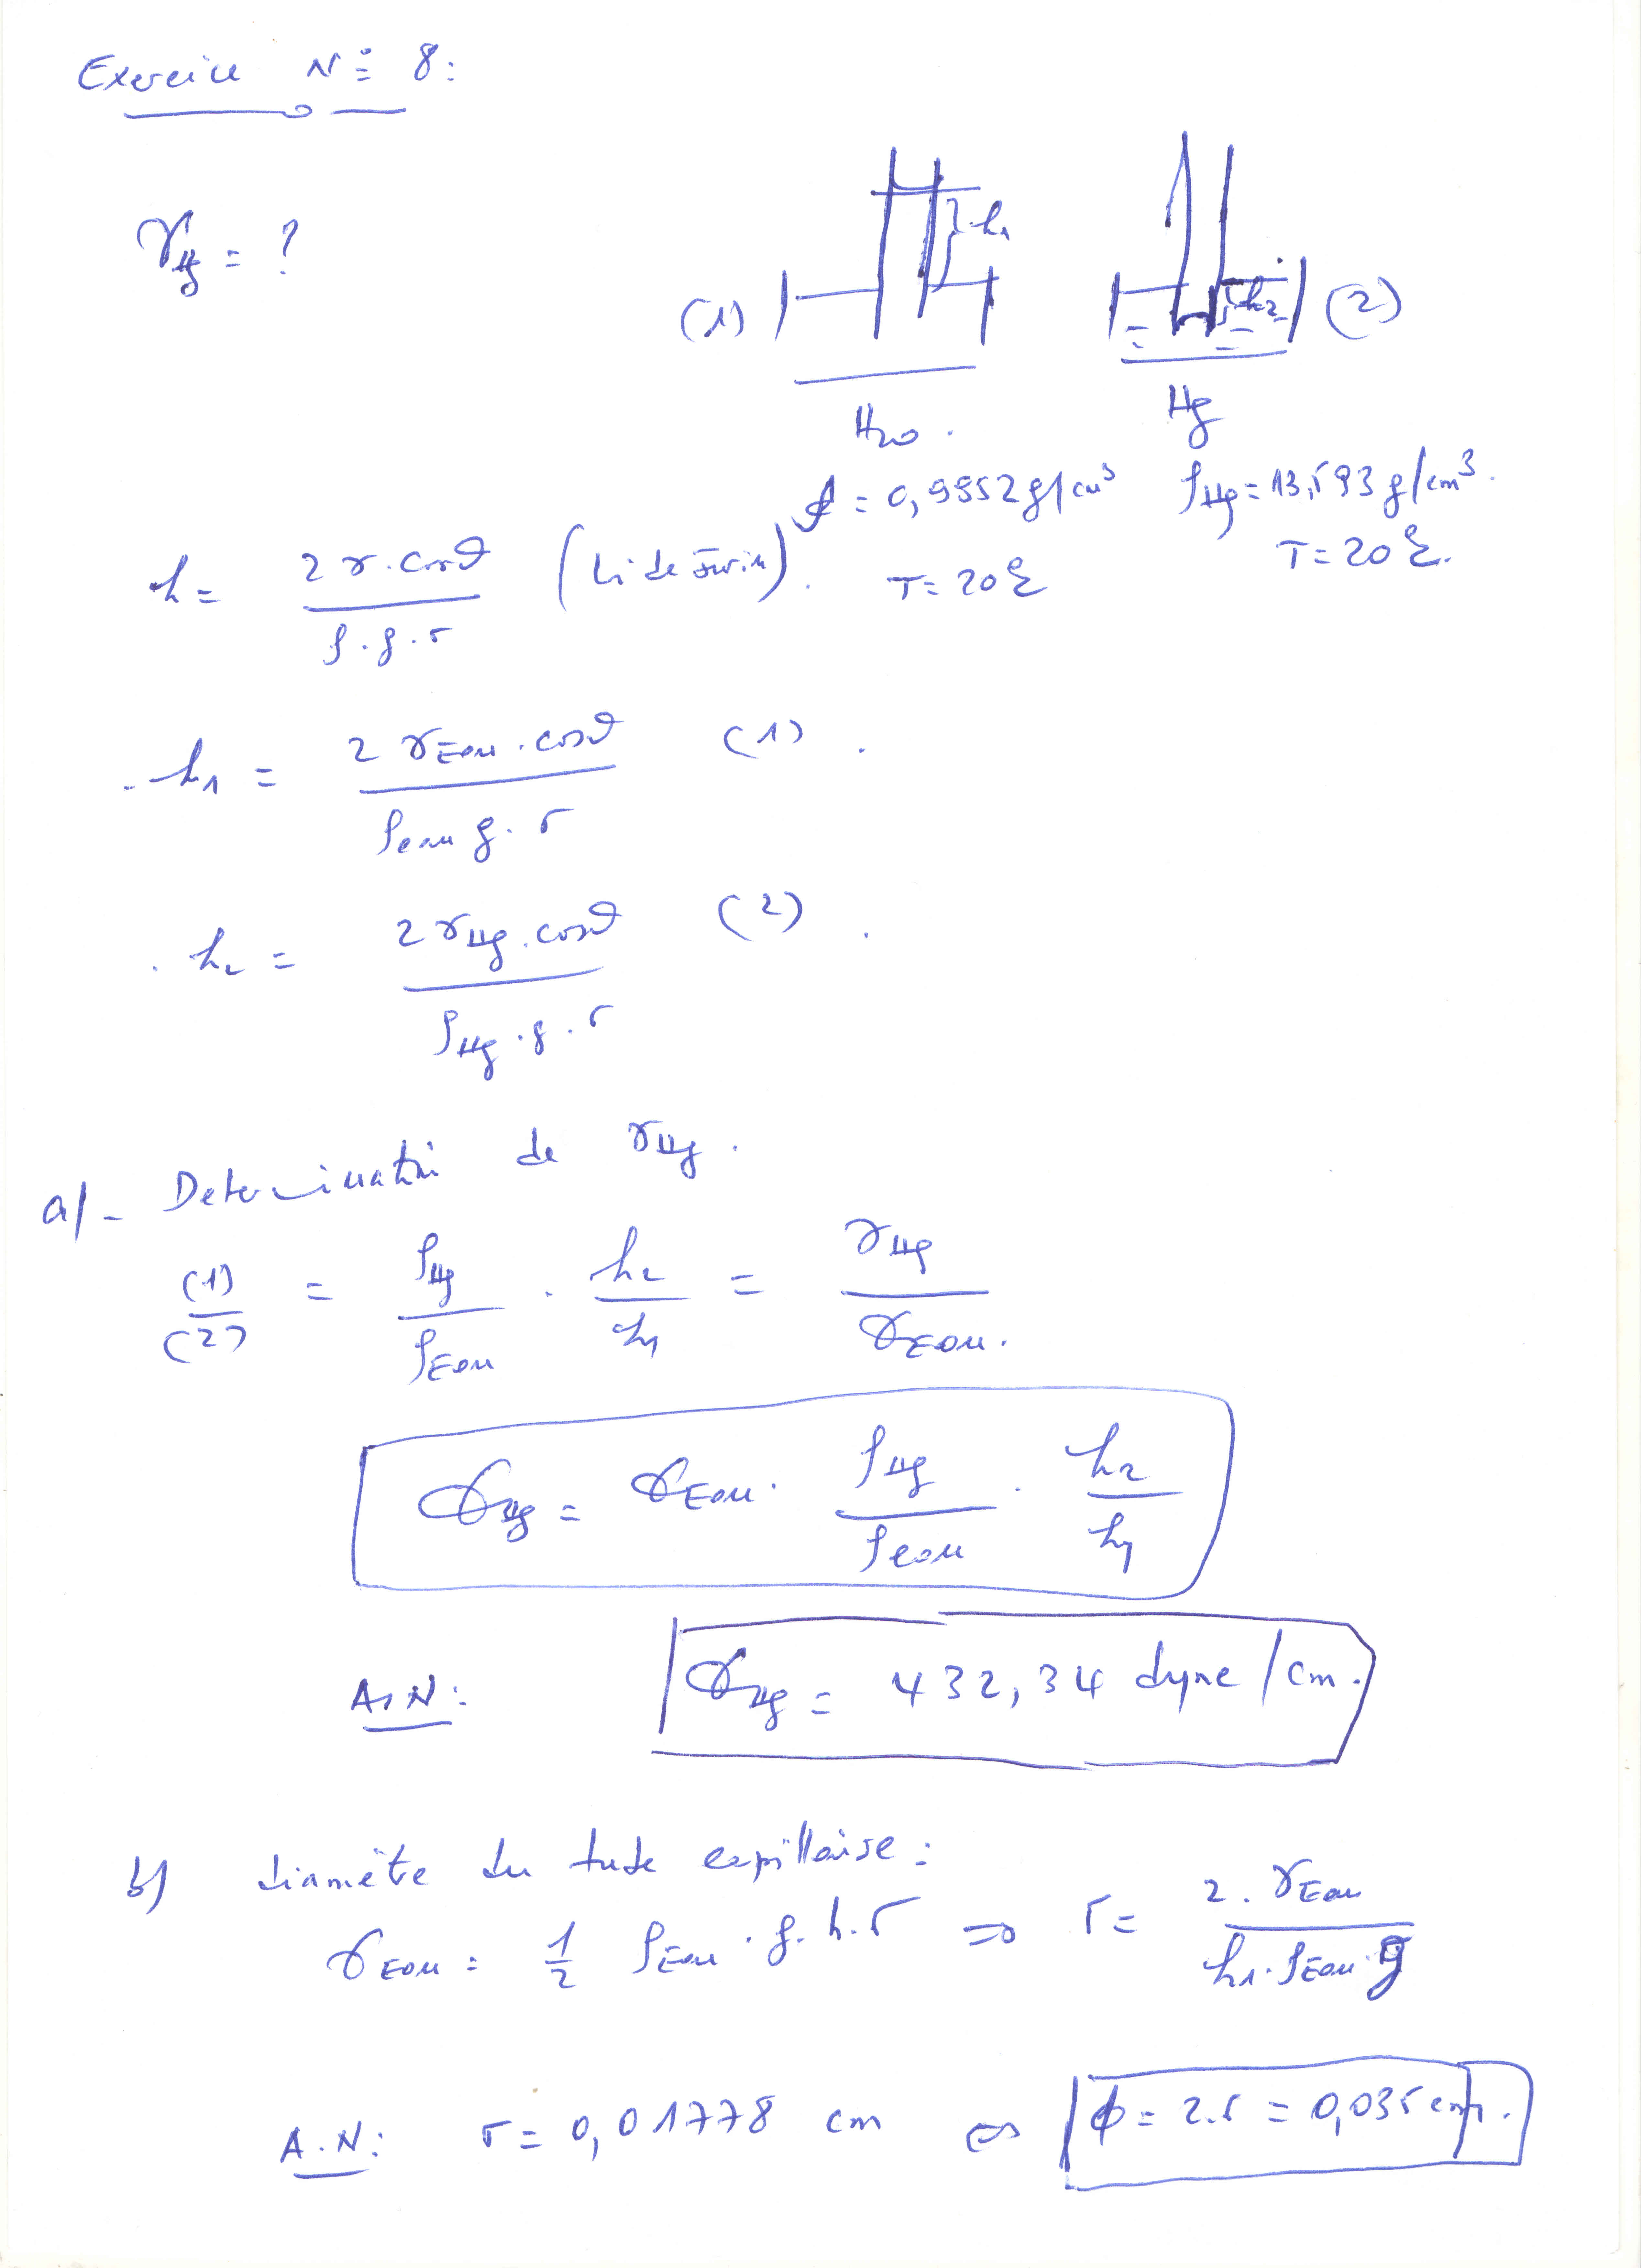 Exercice N° 8:
γHg = ?
h1
h2
(1)
(2)
H2O.
Hg
ρ = 0,9952 g/cm³
ρHg = 13,593 g/cm³.
T = 20
T = 20
h = 2γ.cosθ / ρ.g.r (Loi de Jurin).
. h1 = 2γEau.cosθ / ρeau g.r (1).
. h2 = 2γHg.cosθ / ρHg.g.r (2).
a/- Determination de γHg.
(1)/(2) = ρHg/ρEau . h2/h1 = γHg/γEau.
γHg = γEau . ρHg/ρeau . h2/h1
A.N: γHg = 432,34 dyne/cm.
b) diamètre du tube capillaire:
γEau = 1/2 ρEau.g.h.r => r = 2.γEau / h1.ρEau.g
A.N: r = 0,01778 cm <=> φ = 2.r = 0,035 cm.